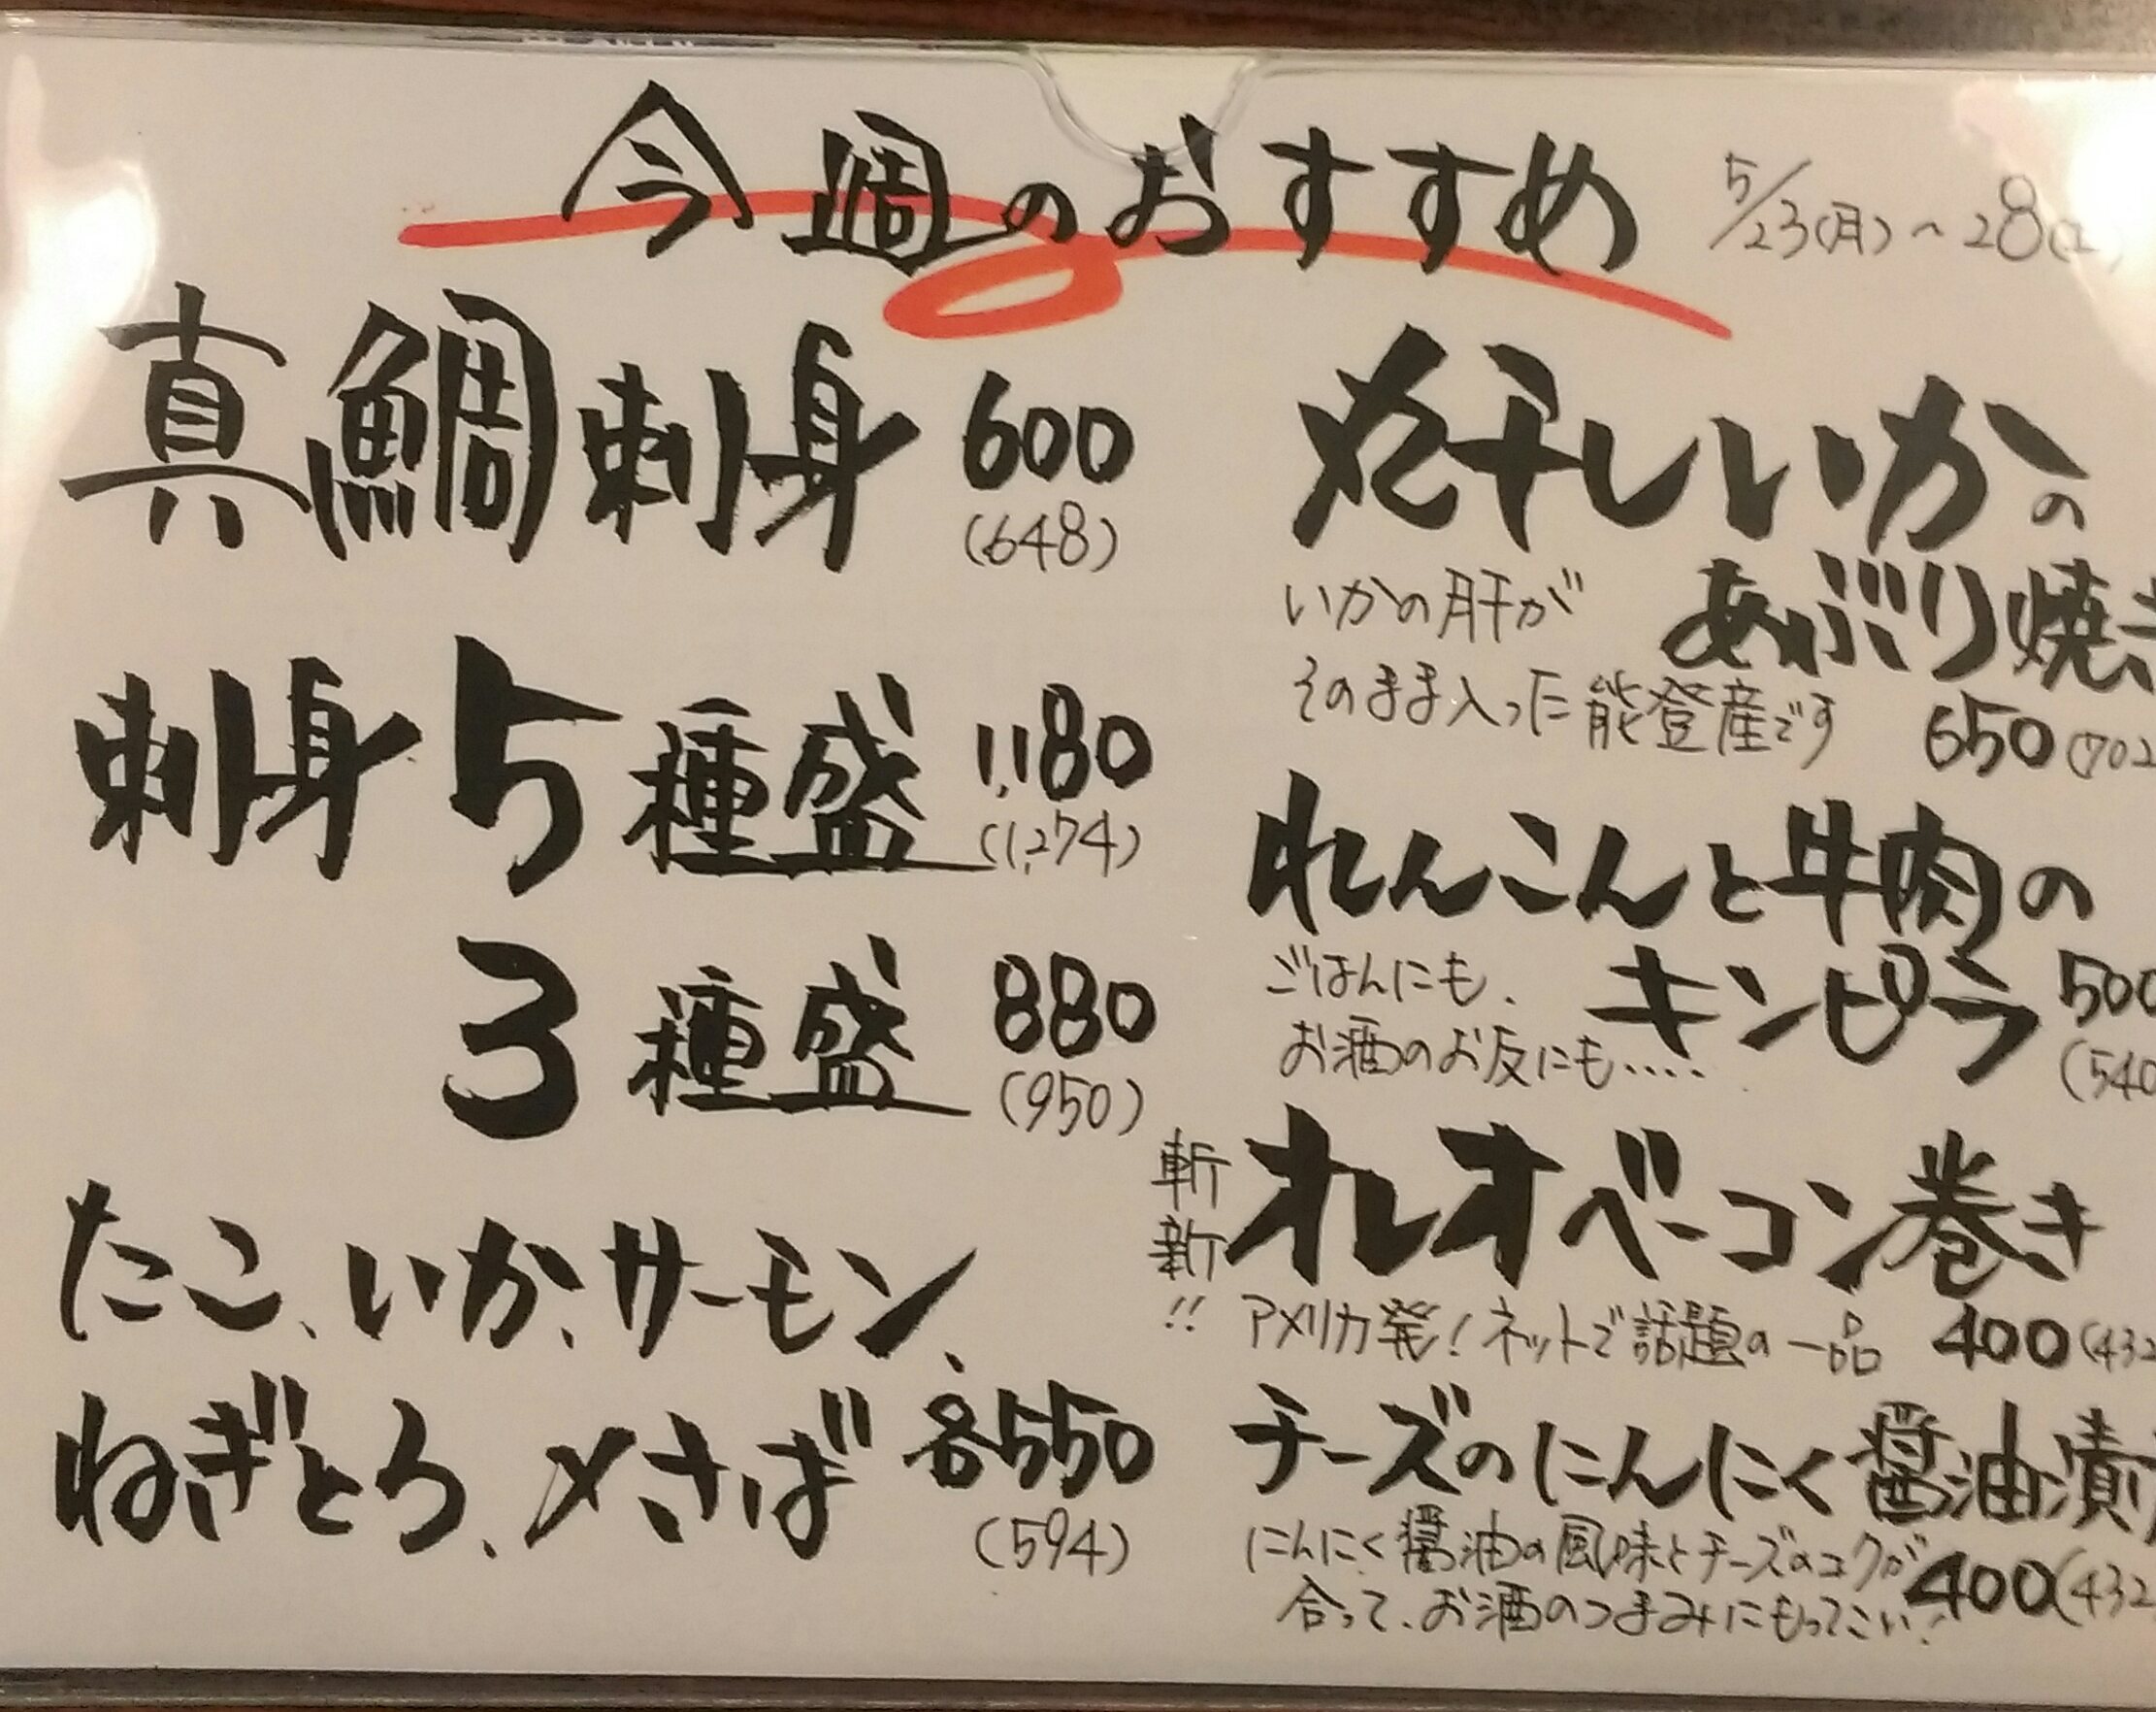 今週のおすすめ 5/23(月)～28(土)
真鯛刺身 600
(648)
刺身5種盛 1,180
(1,274)
3種盛 880
(950)
たこ、いか、サーモン、
ねぎとろ、〆さば 各550
(594)
丸干しいかの
あぶり焼き
いかの肝が
そのまま入った能登産です 650(702
れんこんと牛肉の
キンピラ 500
(540
ごはんにも、
お酒のお友にも‥‥
斬新!! オレオベーコン巻き
アメリカ発!ネットで話題の一品 400(432
チーズのにんにく醤油漬
にんにく醤油の風味とチーズのコクが 400(432
合って、お酒のつまみにもってこい!